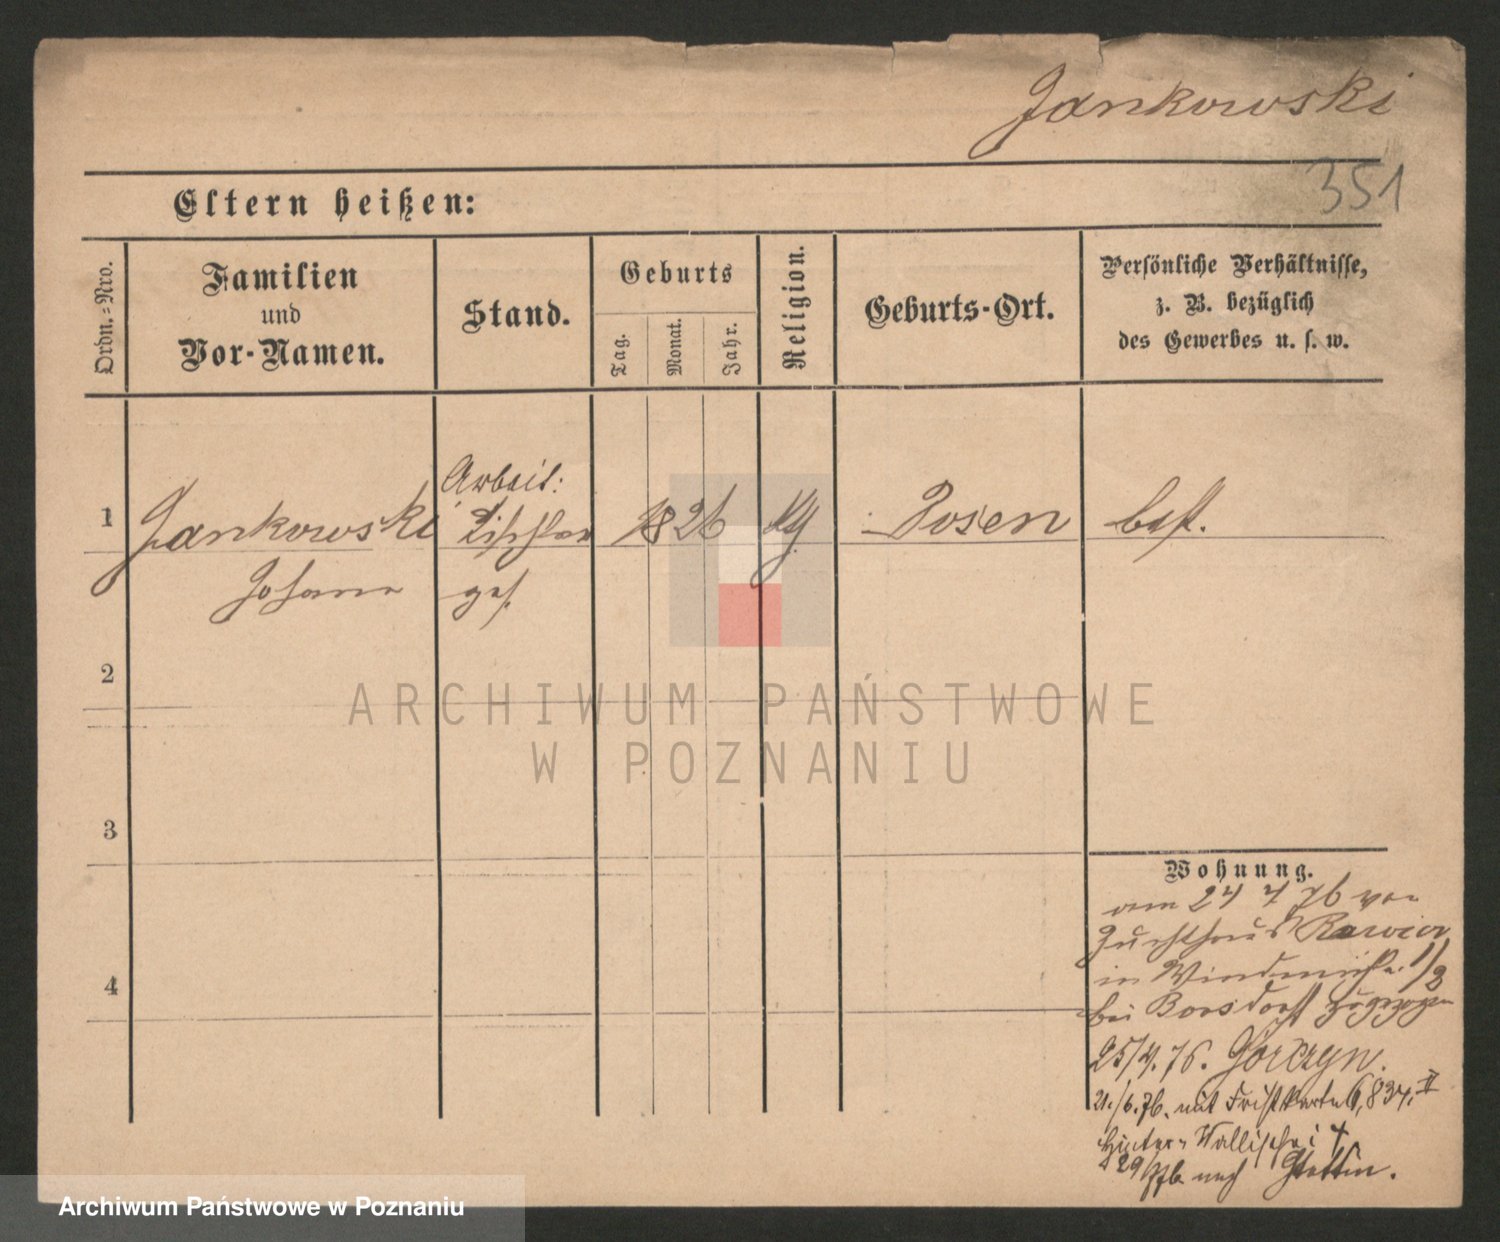 Jankowski
351
Eltern heißen:
Ordn.-Nro.
Familien
und
Vor-Namen.
Stand.
Geburts
Tag.
Monat.
Jahr.
Religion.
Geburts-Ort.
Persönliche Verhältnisse,
z. B. bezüglich
des Gewerbes u. s. w.
Arbeit:
1 Jankowski Tischler 1826 Posen best.
Johann ges.
2
3
4
Wohnung.
am 24 4 76 von
Zuchthaus Rawicz
in 1/2
bei Borsdorff zugezogen
25/4.76. Gorczyn.
21./6.76. mit Fristkarte 6,834. II
Hinter Wallischei 4
29 76 nach Stettin.
ARCHIWUM PAŃSTWOWE
W POZNANIU
Archiwum Państwowe w Poznaniu